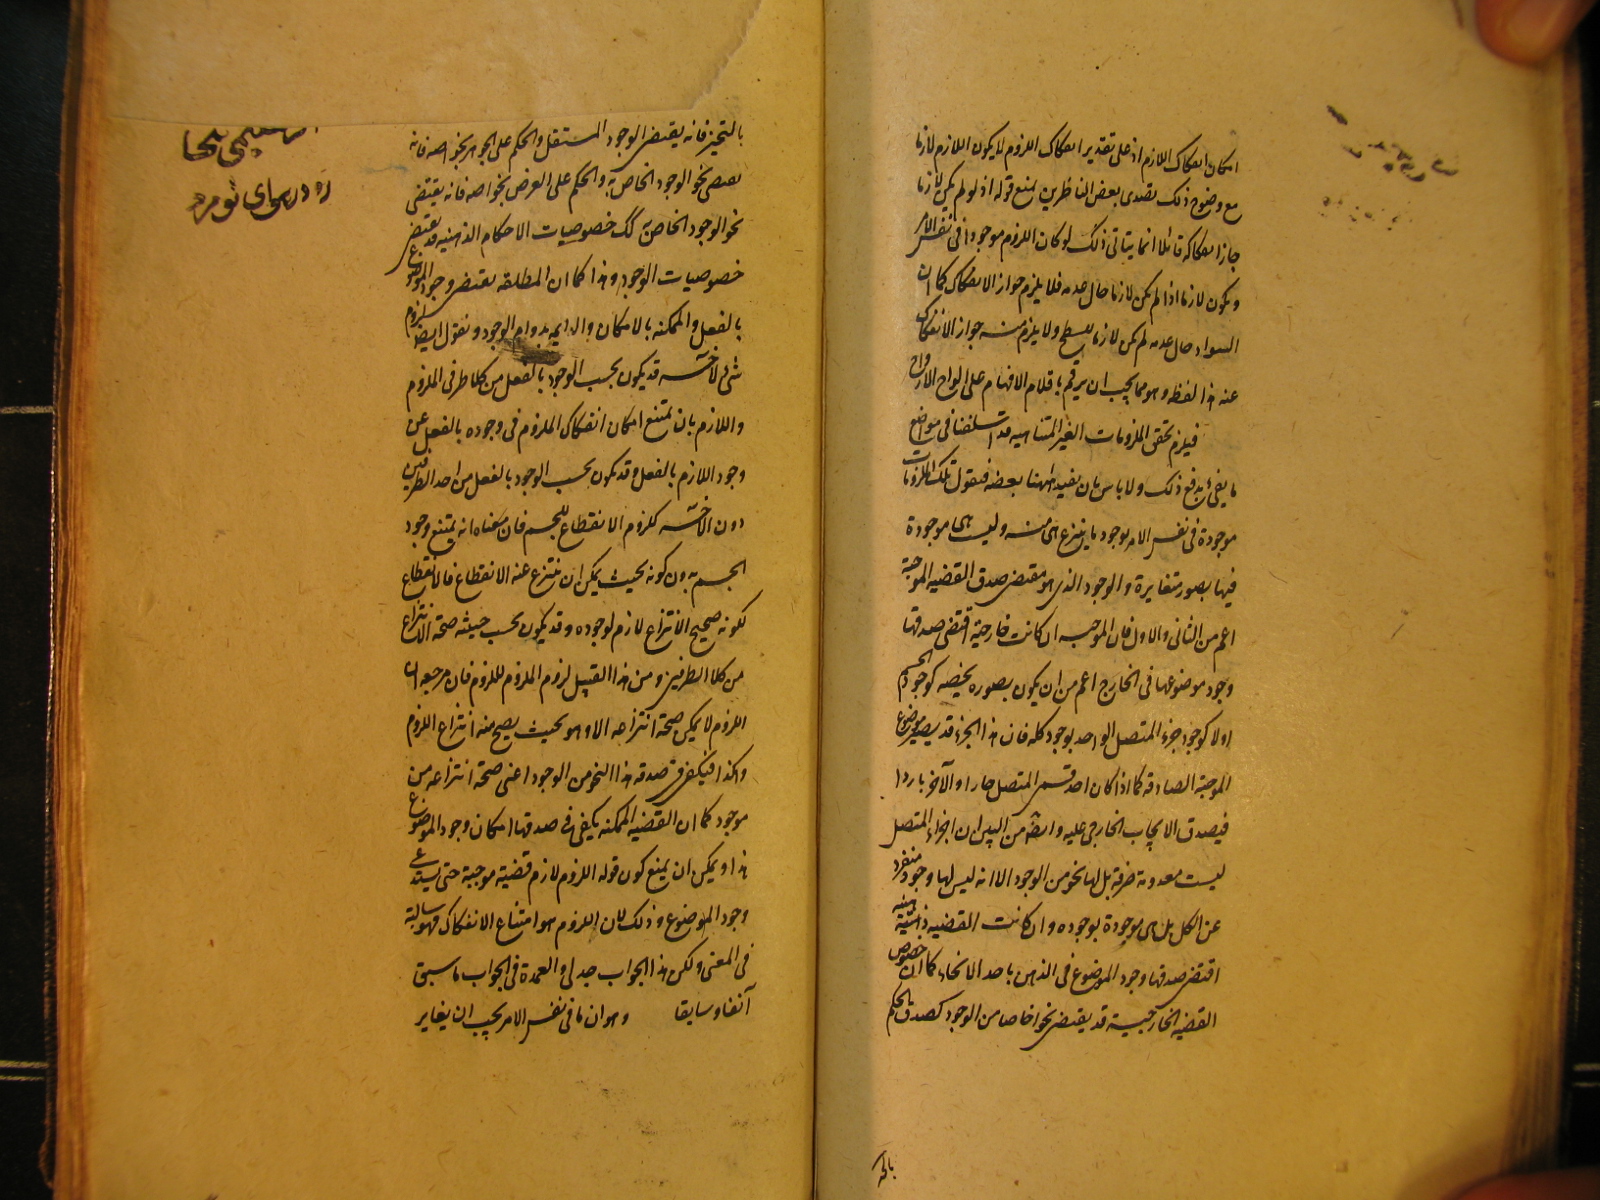 امكان انفكاك اللازم اذ على تقدير انفكاك اللزوم لا يكون اللازم لازما
مع وضوح ذلك تصدى بعض الناظرين لمنع قوله اذ لو لم يكن لازما
جاز انفكاكه قائلا انما يتاتى ذلك لو كان اللزوم موجودا فى نفس الامر
ويكون لازما اذا لم يكن لازما حال عدمه فلا يلزم جواز الانفكاك كما ان
السواد حال عدمه لم يكن لازما للسطح ولا يلزم منه جواز الانفكاك
عنه هذا لفظه وهو مما يجب ان يرقم باقلام الافهام على الواح الارواح
فيلزم تحقق اللزومات الغير المتناهيه قد اسلفنا فى مواضع
ما يفى بدفع ذلك ولا باس بان نعيد ههنا بعضه فنقول تلك اللزومات
موجودة فى نفس الامر بوجود ما ينتزع هى منه وليست هى موجودة
فيها بصور متغايرة والوجود الذى هو مقتضى صدق القضيه الموجبة
اعم من الثانى والاول فان الموجبه ان كانت خارجية اقتضى صدقها
وجود موضوعها فى الخارج اعم من ان يكون بصورة تخصه كوجود الجسم
اولا كوجود جزء المتصل الواحد بوجود كله فان هذا الجزء قد يصير موضوع
الموجبة الصادقه كما اذا كان احد قسمى المتصل حارا والآخر باردا
فيصدق الايجاب الخارجى عليه وايضا من البين ان اجزاء المتصل
ليست معدومة صرفة بل لها نحو من الوجود الا انه ليس لها وجود منفرد
عن الكل بل هى موجودة بوجوده وان كانت القضيه ذهنية
اقتضى صدقها وجود الموضوع فى الذهن باحد الانحاء كما ان خصوص
القضيه الخارجية قد يقتضى نحوا خاصا من الوجود كصدق الحكم
بالتحيز فانه يقتضى الوجود المستقل والحكم على الجوهر بخواصه فانه
يقتضى نحو الوجود الخاص به والحكم على العرض بخواصه فانه يقتضى
نحو الوجود الخاص به كك خصوصيات الاحكام الذهنيه قد يقتضى
خصوصيات الوجود وهذا كما ان المطلقه يقتضى وجود الموضوع
بالفعل والممكنه بالامكان والدايمه بدوام الوجود ونقول ايضا لزوم
شئ لآخر قد يكون بحسب الوجود بالفعل من كلا طرفى الملزوم
واللازم بان يمتنع امكان انفكاك الملزوم فى وجوده بالفعل عن
وجود اللازم بالفعل وقد يكون بحسب الوجود بالفعل من احد الطرفين
دون الآخر كلزوم الانقطاع للجسم فان معناه انه يمتنع وجود
الجسم بدون كونه بحيث يمكن ان ينتزع عنه الانقطاع فالانقطاع
لكونه صحيح الانتزاع لازم لوجوده وقد يكون بحسب حيثيه صحة الانتزاع
من كلا الطرفين ومن هذا القبيل لزوم الملزوم للزوم فان مرجعه ان
اللزوم لا يمكن صحة انتزاعه الا وهو بحيث يصح منه انتزاع اللزوم
وهكذا فيكفى فى صدقه هذا النحو من الوجود اعنى صحة انتزاعه من
موجود كما ان القضيه الممكنه يكفى فى صدقها امكان وجود الموضوع
هذا ويمكن ان يمنع كون قوله اللزوم لازم قضية موجبة حتى يستدعى
وجود الموضوع وذلك لان اللزوم هو امتناع الانفكاك فهو سالبة
فى المعنى ولكن هذا الجواب جدلى والعمدة فى الجواب ما سبق
آنفا وسابقا وهو ان ما فى نفس الامر يجب ان يغاير